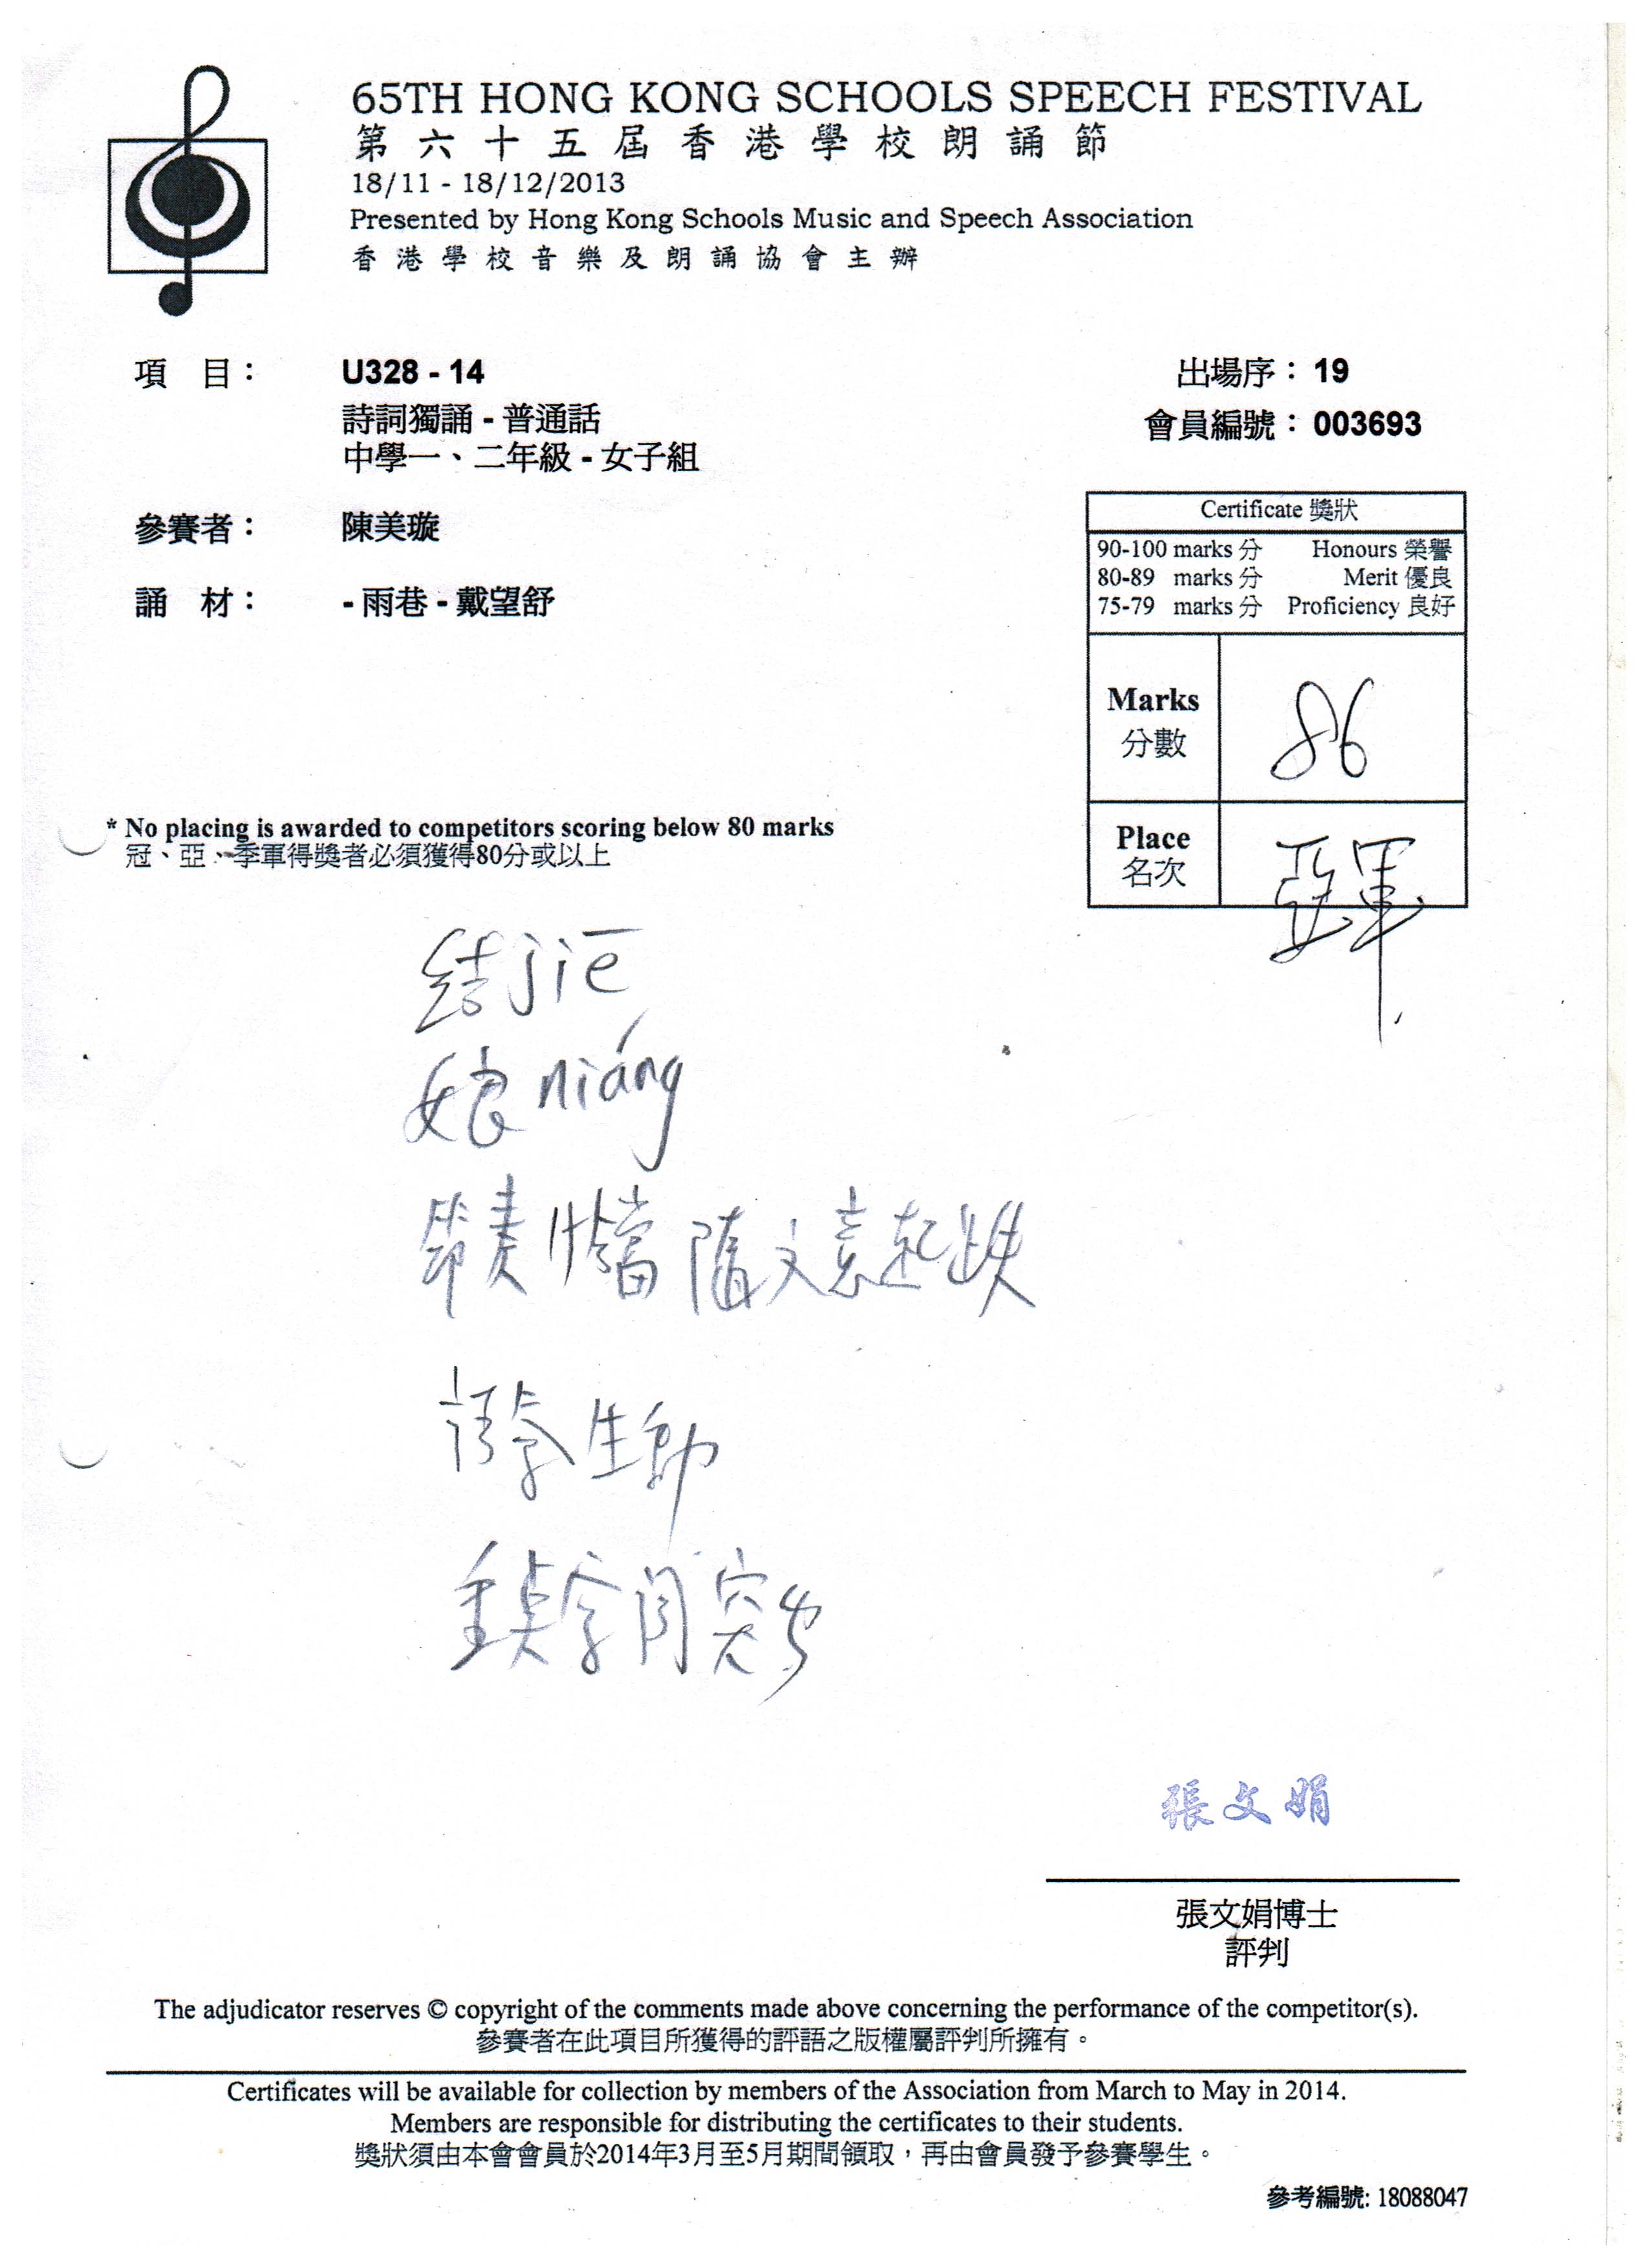 65TH HONG KONG SCHOOLS SPEECH FESTIVAL
第六十五屆香港學校朗誦節
18/11 - 18/12/2013
Presented by Hong Kong Schools Music and Speech Association
香港學校音樂及朗誦協會主辦
項 目： U328 - 14 出場序： 19
詩詞獨誦 - 普通話 會員編號： 003693
中學一、二年級 - 女子組
Certificate 獎狀
參賽者： 陳美璇
90-100 marks 分 Honours 榮譽
80-89 marks 分 Merit 優良
75-79 marks 分 Proficiency 良好
誦 材： - 雨巷 - 戴望舒
Marks 分數 86
* No placing is awarded to competitors scoring below 80 marks
冠、亞、季軍得獎者必須獲得80分或以上
Place 名次 亞軍
結 jiē
娘 niáng
節奏恰當 隨文意起跌
語氣生動
重點字詞突出
張文娟
張文娟博士
評判
The adjudicator reserves © copyright of the comments made above concerning the performance of the competitor(s).
參賽者在此項目所獲得的評語之版權屬評判所擁有。
Certificates will be available for collection by members of the Association from March to May in 2014.
Members are responsible for distributing the certificates to their students.
獎狀須由本會會員於2014年3月至5月期間領取，再由會員發予參賽學生。
參考編號: 18088047